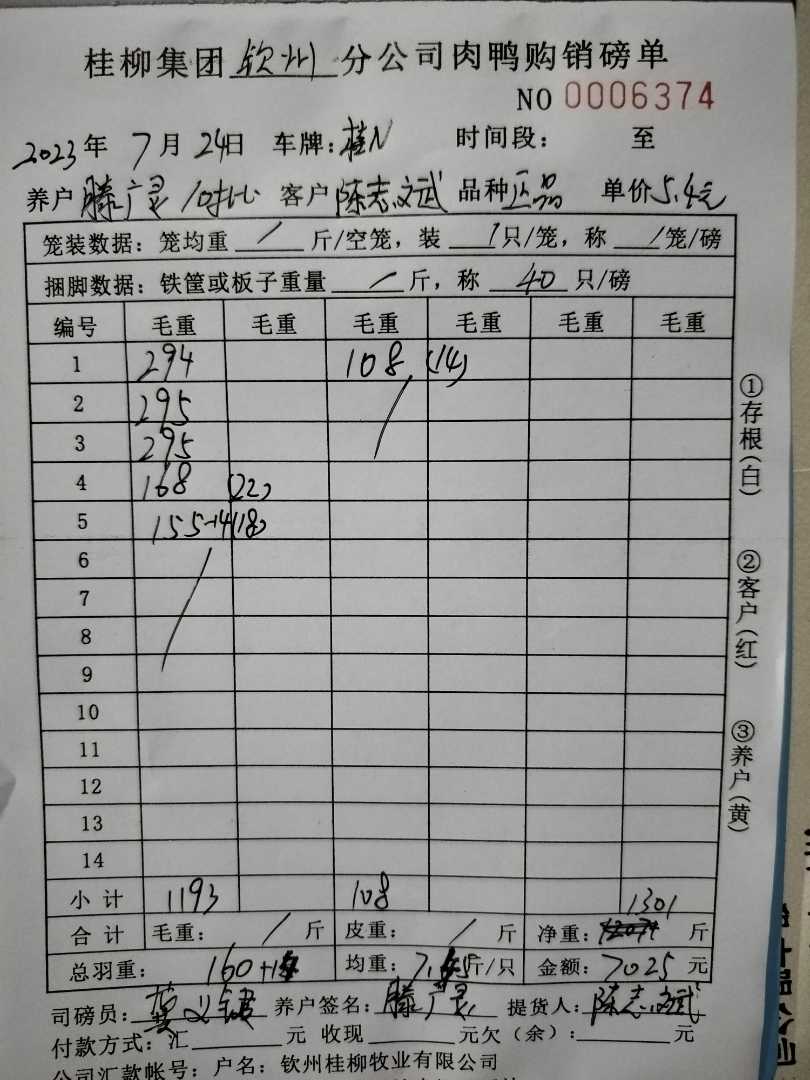 桂柳集团 钦州 分公司肉鸭购销磅单
NO 0006374
2023 年 7 月 24日 车牌:桂N 时间段: 至
养户 滕广灵 客户 陈志斌 品种 正品 单价 5.4元
笼装数据: 笼均重 / 斤/空笼, 装 / 只/笼, 称 / 笼/磅
捆脚数据: 铁筐或板子重量 / 斤, 称 40 只/磅
编号 毛重 毛重 毛重 毛重 毛重 毛重
1 294 108 (14)
2 295
3 295
4 168 (22)
5 155-14(18)
6
7
8
9
10
11
12
13
14
小计 1193 108 1301
合计 毛重: / 斤 皮重: / 斤 净重: 斤
总羽重: 160+14 均重: 斤/只 金额: 7025 元
司磅员: 养户签名: 滕广灵 提货人: 陈志斌
付款方式: 汇 元 收现 元欠(余): 元
公司汇款帐号: 户名: 钦州桂柳牧业有限公司
①存根(白)
②客户(红)
③养户(黄)